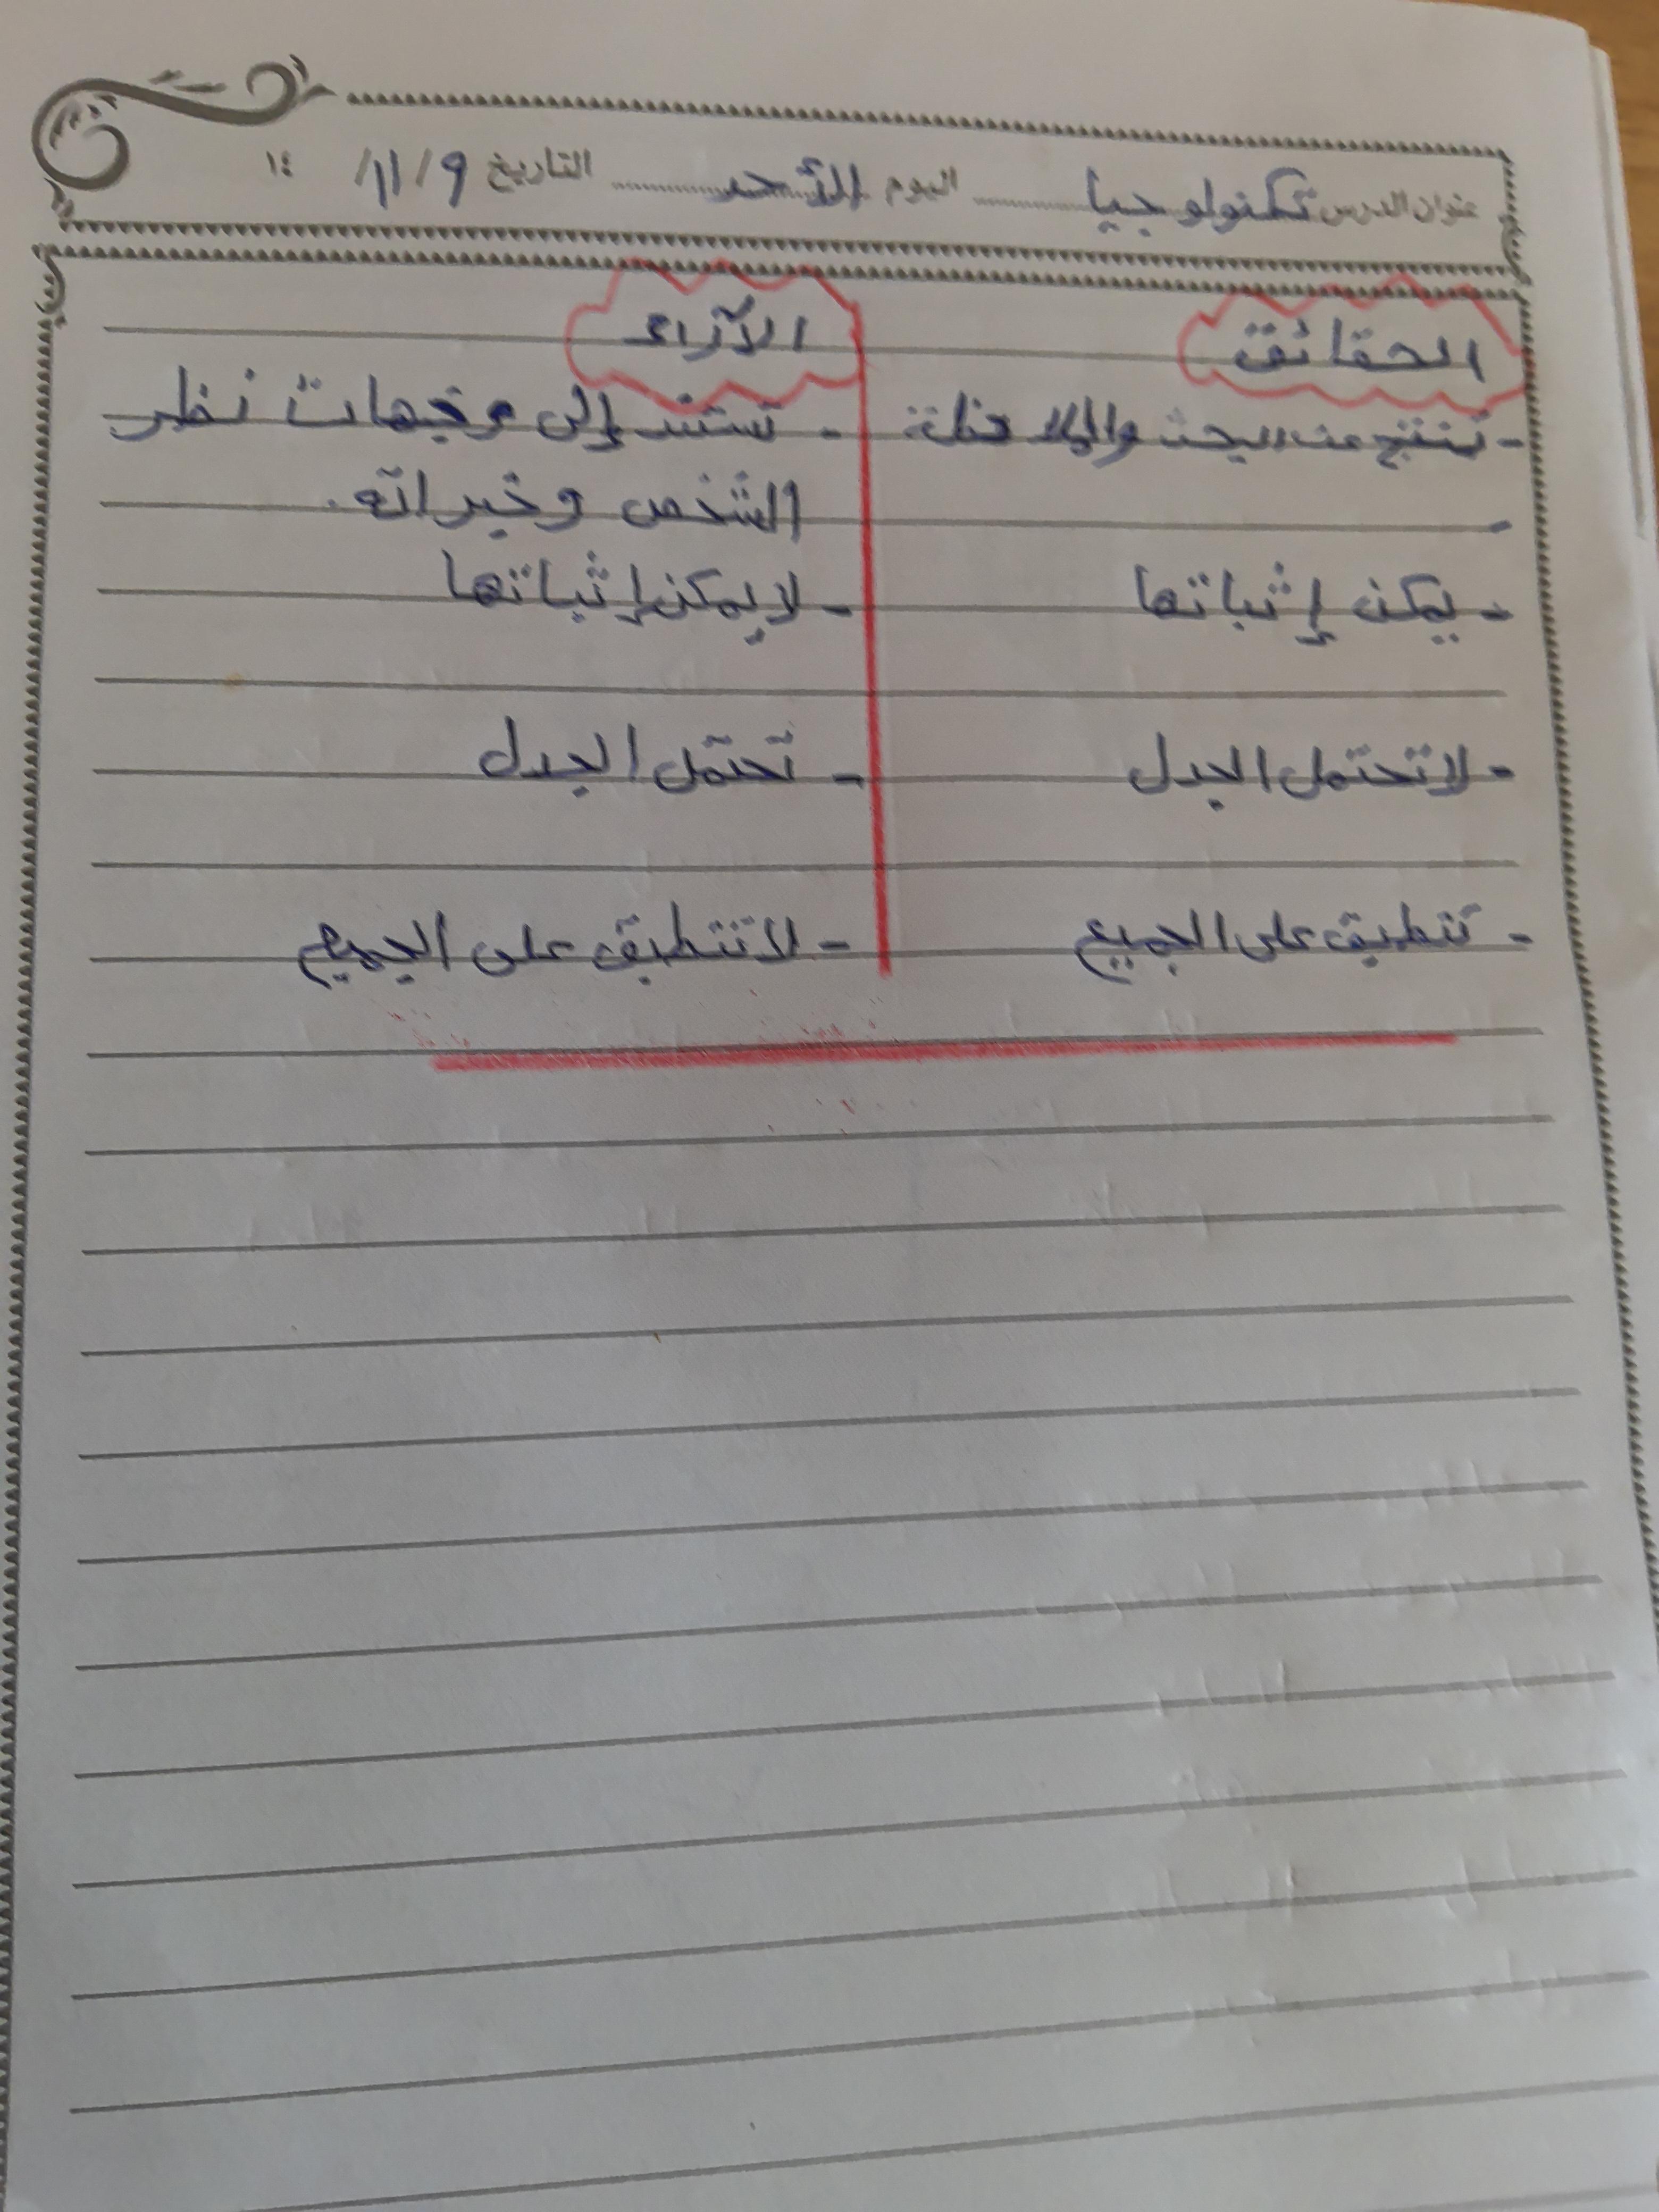 عنوان الدرس تكنولوجيا اليوم الأحد التاريخ ٩/١١/ ١٤
الحقائق
الآراء
- تنتج عن البحث والملاحظة
- تستند إلى وجهات نظر
الشخص وخبراته.
- يمكن إثباتها
- لا يمكن إثباتها
- لا تحتمل الجدل
- تحتمل الجدل
- تنطبق على الجميع
- لا تنطبق على الجميع